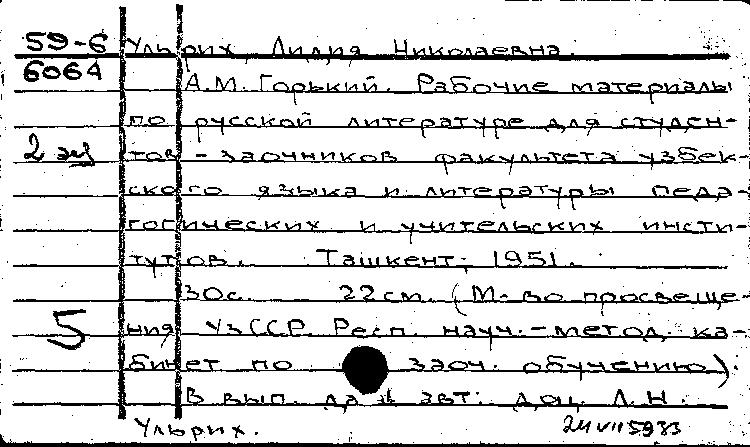 59-6 Ульрих, Лилия Николаевна.
6064 А.М. Горький. Рабочие материалы
по русской литературе для студен-
2 экз тов-заочников факультета узбек-
ского языка и литературы педа-
гогических и учительских инсти-
тутов. Ташкент, 1951.
30с. 22см. (М-во просвеще-
5 ния УзССР. Респ. науч.-метод. ка-
бинет по заоч. обучению).
В вып. дан авт: доц. Л.Н.
Ульрих.